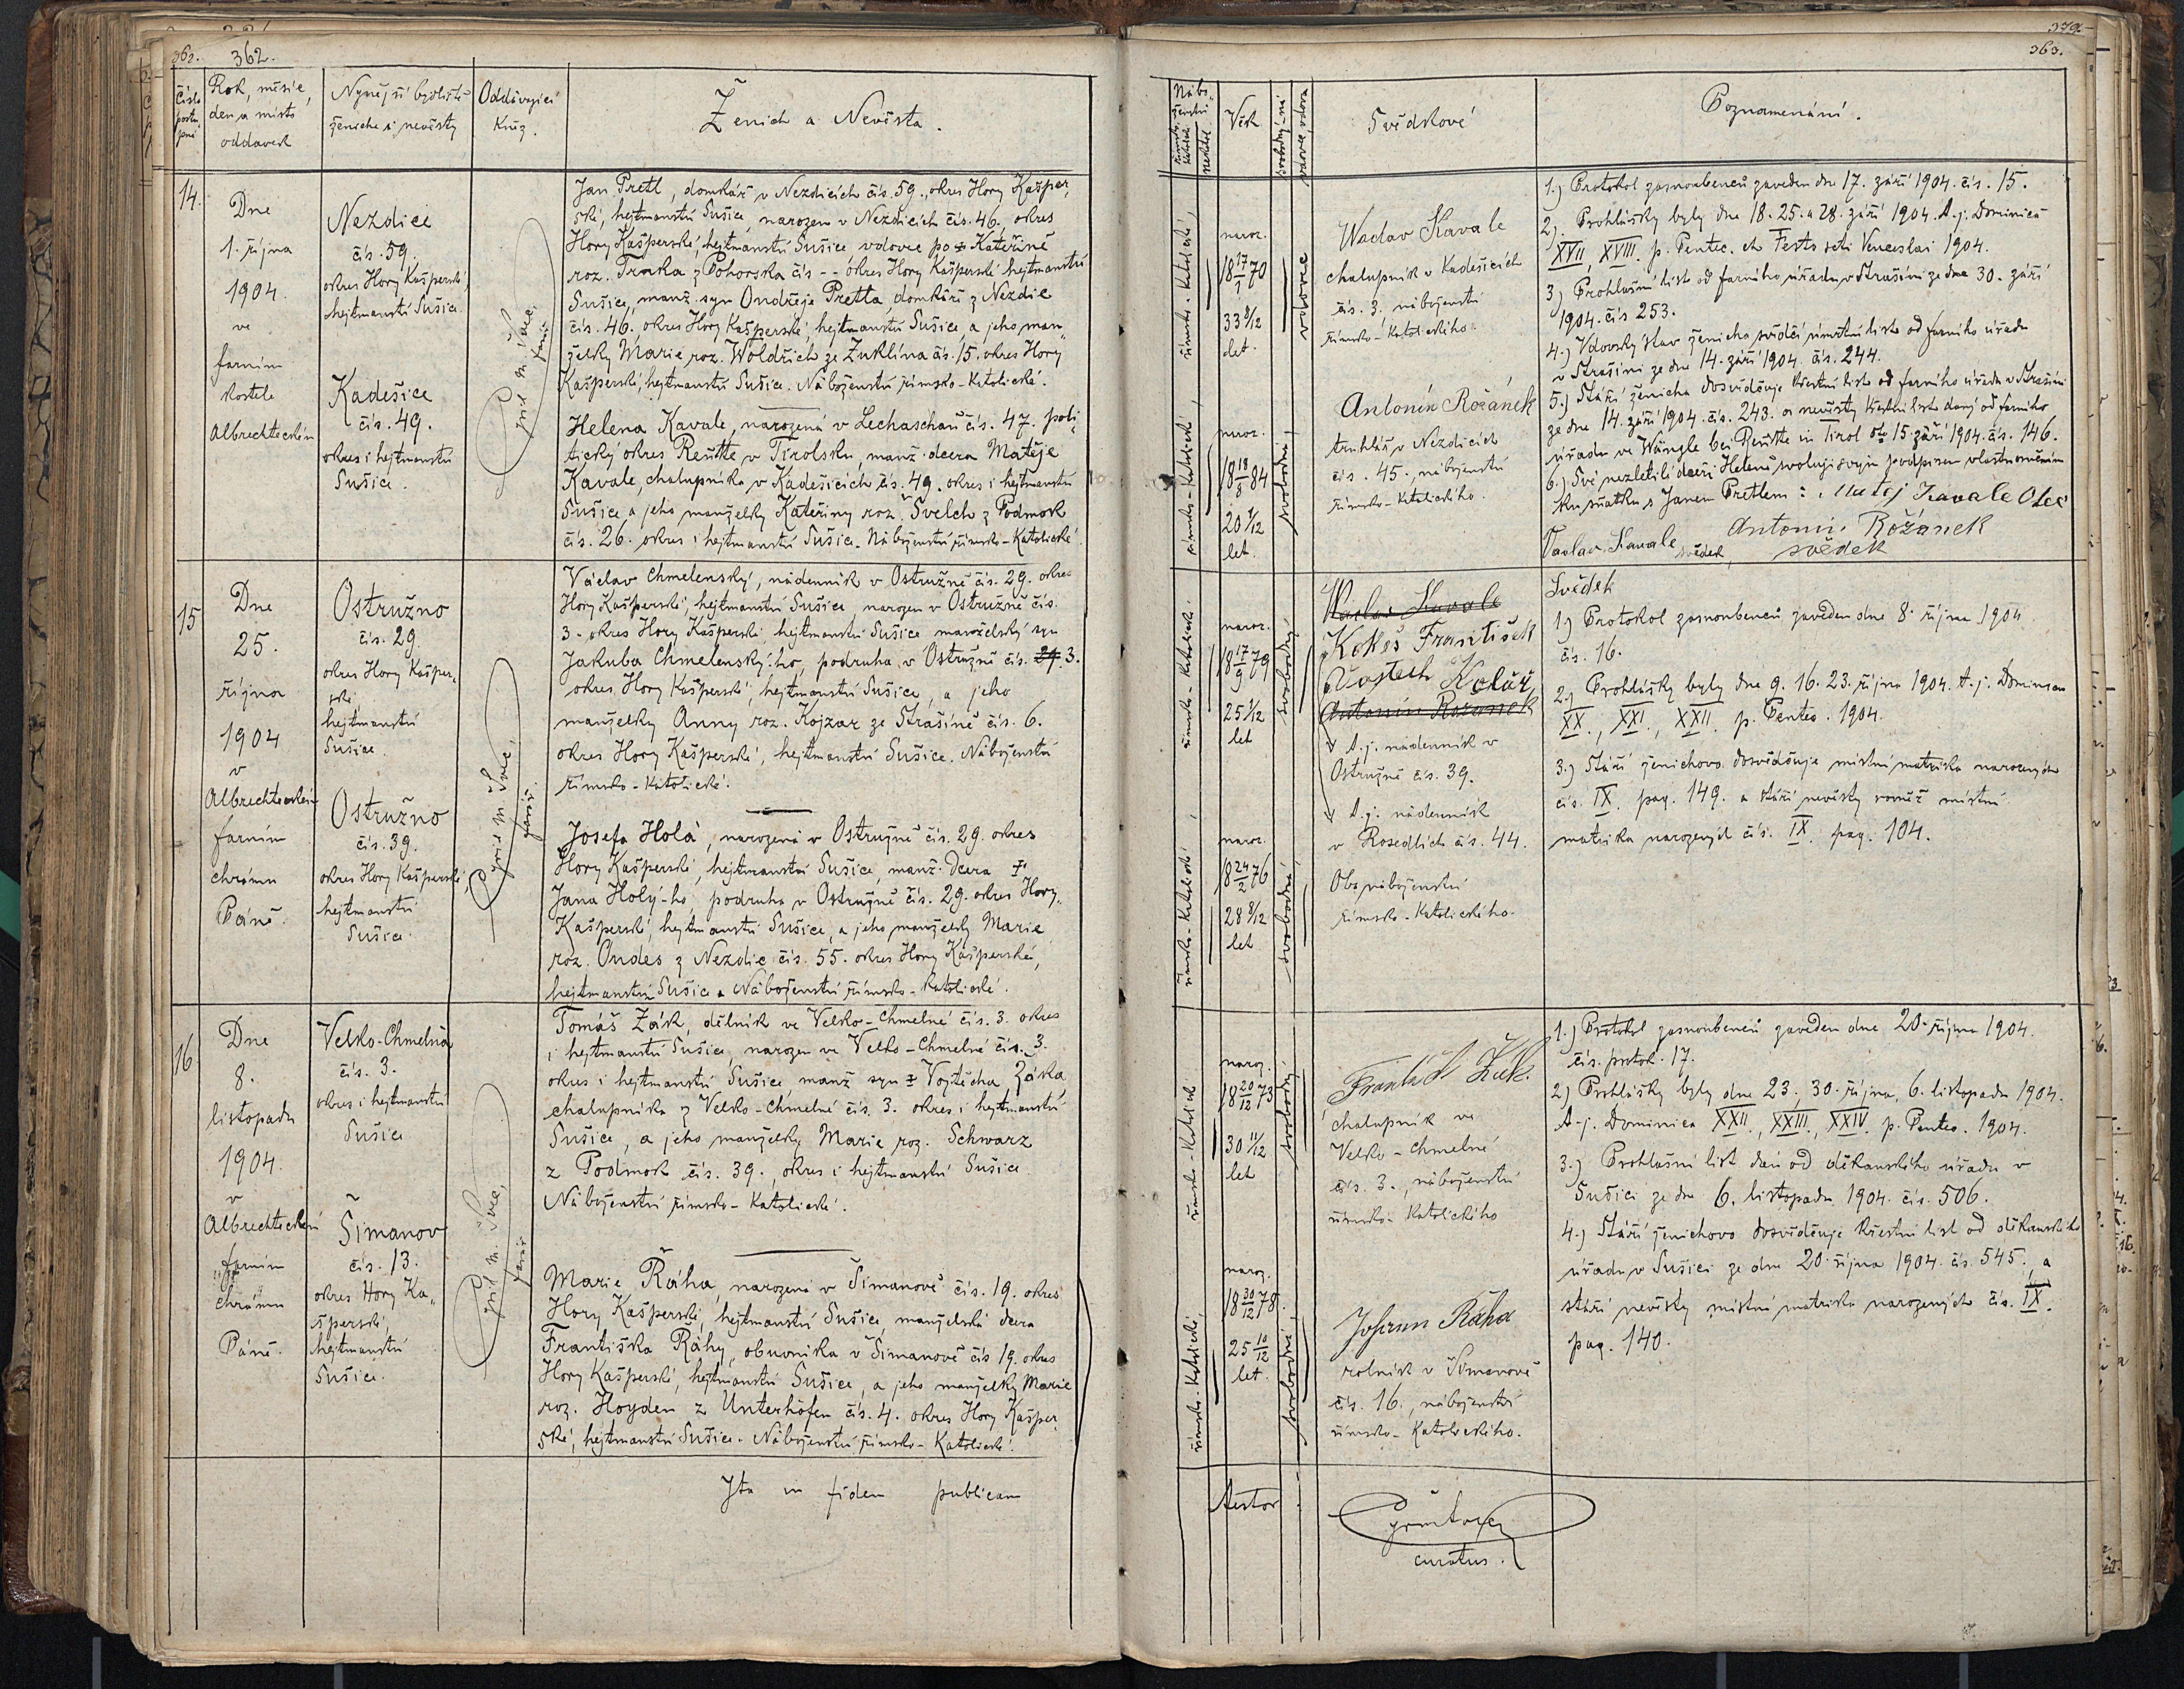 362. 362.
Číslo postupné
Rok, měsíc, den a místo oddavek
Nynější bydliště ženicha a nevěsty
Oddávající kněz.
Ženich a Nevěsta.
14.
Dne
1. října
1904.
ve
farním
kostele
Albrechteckém
Nezdice
čís. 59.
okres Hory Kašperské,
hejtmanství Sušice.
Kadešice
čís. 49.
okres i hejtmanství
Sušice.
Jan Pretl, domkář v Nezdicích čís. 59., okres Hory Kašper„
ské, hejtmanství Sušice, narozen v Nezdicích čís. 46, okres
Hory Kašperské, hejtmanství Sušice vdovec po ✝ Kateřině
roz. Traka z Pohorska čís -- okres Hory Kašperské hejtmanství
Sušice, manž. syn Ondřeje Pretla, domkáře z Nezdic
čís. 46. okres Hory Kašperské, hejtmanství Sušice, a jeho man„
želky Marie roz. Woldřich ze Žuklína čís. 15. okres Hory
Kašperské, hejtmanství Sušice. Náboženství římsko-katolické.
Helena Kavale, narozená v Lechaschau čís. 47. poli„
tický okres Reutte v Tirolsku, manž. dcera Matěje
Kavale, chalupníka v Kadešicích čís. 49. okres i hejtmanství
Sušice a jeho manželky Kateřiny roz. Švelch z Podmok
čís. 26. okres i hejtmanství Sušice. Náboženství římsko-katolické.
15
Dne
25.
října
1904
v
Albrechteckém
farním
chrámu
Páně.
Ostružno
čís. 29.
okres Hory Kašper„
ské,
hejtmanství
Sušice.
Ostružno
čís. 39.
okres Hory Kašperské
hejtmanství
Sušice.
farář.
Václav Chmelenský, nádenník v Ostružně čís. 29. okres
Hory Kašperské, hejtmanství Sušice, narozen v Ostružně čís.
3. okres Hory Kašperské, hejtmanství Sušice manželský syn
Jakuba Chmelenský-ho, podruha v Ostružně čís. 29 3.
okres Hory Kašperské, hejtmanství Sušice, a jeho
manželky Anny roz. Kojzar ze Strašíně čís. 6.
okres Hory Kašperské, hejtmanství Sušice. Náboženství
římsko-katolické.
Josefa Holá, narozená v Ostružně čís. 29. okres
Hory Kašperské, hejtmanství Sušice, manž. dcera ✝
Jana Holý-ho, podruha v Ostružně čís. 29. okres Hory„
Kašperské, hejtmanství Sušice, a jeho manželky Marie
roz. Ondes z Nezdic čís. 55. okres Hory Kašperské,
hejtmanství Sušice. Náboženství římsko-katolické.
16
Dne
8.
listopadu
1904.
v
Albrechteckém
farním
chrámu
Páně.
Velko-Chmelná
čís. 3.
okres i hejtmanství
Sušice
Šimanov
čís. 13.
okres Hory Ka„
šperské,
hejtmanství
Sušice.
farář
Tomáš Žák, dělník ve Velko-Chmelné čís. 3. okres
i hejtmanství Sušice, narozen ve Velko-Chmelné čís. 3.
okres i hejtmanství Sušice, manž syn ✝ Vojtěcha Žáka,
chalupníka z Velko-Chmelné čís. 3. okres i hejtmanství
Sušice, a jeho manželky Marie roz. Schwarz
z Podmok čís. 39., okres i hejtmanství Sušice
Náboženství římsko-katolické.
Marie Ráha, narozená v Šimanově čís. 19. okres
Hory Kašperské, hejtmanství Sušice, manželská dcera
Františka Ráhy, obuvníka v Šimanově čís 19. okres
Hory Kašperské, hejtmanství Sušice, a jeho manželky Marie
roz. Hoyden z Unterhöfen čís. 4. okres Hory Kašper„
ské, hejtmanství Sušice. Náboženství římsko-katolické.
Ita in fidem publicam
379
363.
Náboženství
Věk
Svědkové
Poznamenání.
římsko-katolické,
naroz.
18 17/1 70
33 8/12
let.
vdovec
Waclav Kavale
chalupník v Kadešicích
čís. 3. náboženství
římsko-katolického.
římsko-katolické,
naroz.
18 18/8 84
20 1/12
let.
svobodná
Antonín Rožánek
truhlář v Nezdicích
čís. 45., náboženství
římsko-katolického.
1.) Protokol zasnoubenců zaveden dne 17. září 1904. čís. 15.
2). Prohlášky byly dne 18. 25. a 28. září 1904. t.j. Dominica
XVII, XVIII. p. Pentec. et Festo scti Venceslai 1904.
3.) Prohlašní list od farního úřadu v Strašíni ze dne 30. září
1904. čís 253.
4.) Vdovský stav ženicha svědčí úmrtní list od farního úřadu
v Strašíni ze dne 14. září 1904. čís. 244.
5.) Stáří ženicha dosvědčuje křestní list od farního úřadu v Strašíni
ze dne 14. září 1904. čís. 243. a nevěsty křestní list daný od farního
úřadu ve Wängle bei Reutte in Tirol dto 15. září 1904. čís. 146.
6.) Své nezletilé dceři Heleně svoluji svým podpisem vlastnoručním
ku sňatku s Janem Pretlem: Matěj Kavale Otec
Antonín Rožánek
Vaclav Kavale svědek svědek
římsko-katolické
naroz.
18 17/9 79
25 1/12
let
svobodný
Waclav Kavale
Kokeš František
Vojtěch Kolář
Antonín Rožanek
t.j. nádenník v
Ostružně čís. 39.
t.j. nádenník
v Rosedlích čís. 44.
Oba náboženství
římsko-katolického.
římsko-katolické
naroz.
18 24/2 76
28 8/12
let.
svobodná
Svědek
1.) Protokol zasnoubenců zaveden dne 8. října 1904
čís. 16.
2.) Prohlášky byly dne 9. 16. 23. října 1904. t.j. Dominica
XX., XXI., XXII. p. Pentec. 1904.
3.) Stáří ženichovo dosvědčuje místní matrika narozených
čís. IX. pag. 149. a stáří nevěsty rovněž místní
matrika narozených čís. IX. pag. 104.
římsko-katolické
naroz.
18 20/12 73
30 11/12
let
svobodný
František Žák.
chalupník ve
Velko-Chmelné
čís. 3., náboženství
římsko-katolického
římsko-katolické,
naroz.
18 30/12 78.
25 10/12
let.
svobodná
Johann Ráha
rolník v Šimanově
čís. 16., náboženství
římsko-katolického.
1.) Protokol zasnoubenců zaveden dne 20. října 1904.
čís. protok. 17.
2.) Prohlášky byly dne 23., 30. října, 6. listopadu 1904.
t.j. Dominica XXII., XXIII., XXIV. p. Pentec. 1904.
3.) Prohlašní list dán od děkanského úřadu v
Sušici ze dne 6. listopadu 1904. čís. 506.
4.) Stáří ženichovo dosvědčuje křestní list od děkanského
úřadu v Sušici ze dne 20. října 1904. čís. 545., a
stáří nevěsty místní matrika narozených čís. IX.
pag. 140.
testor
curatus.